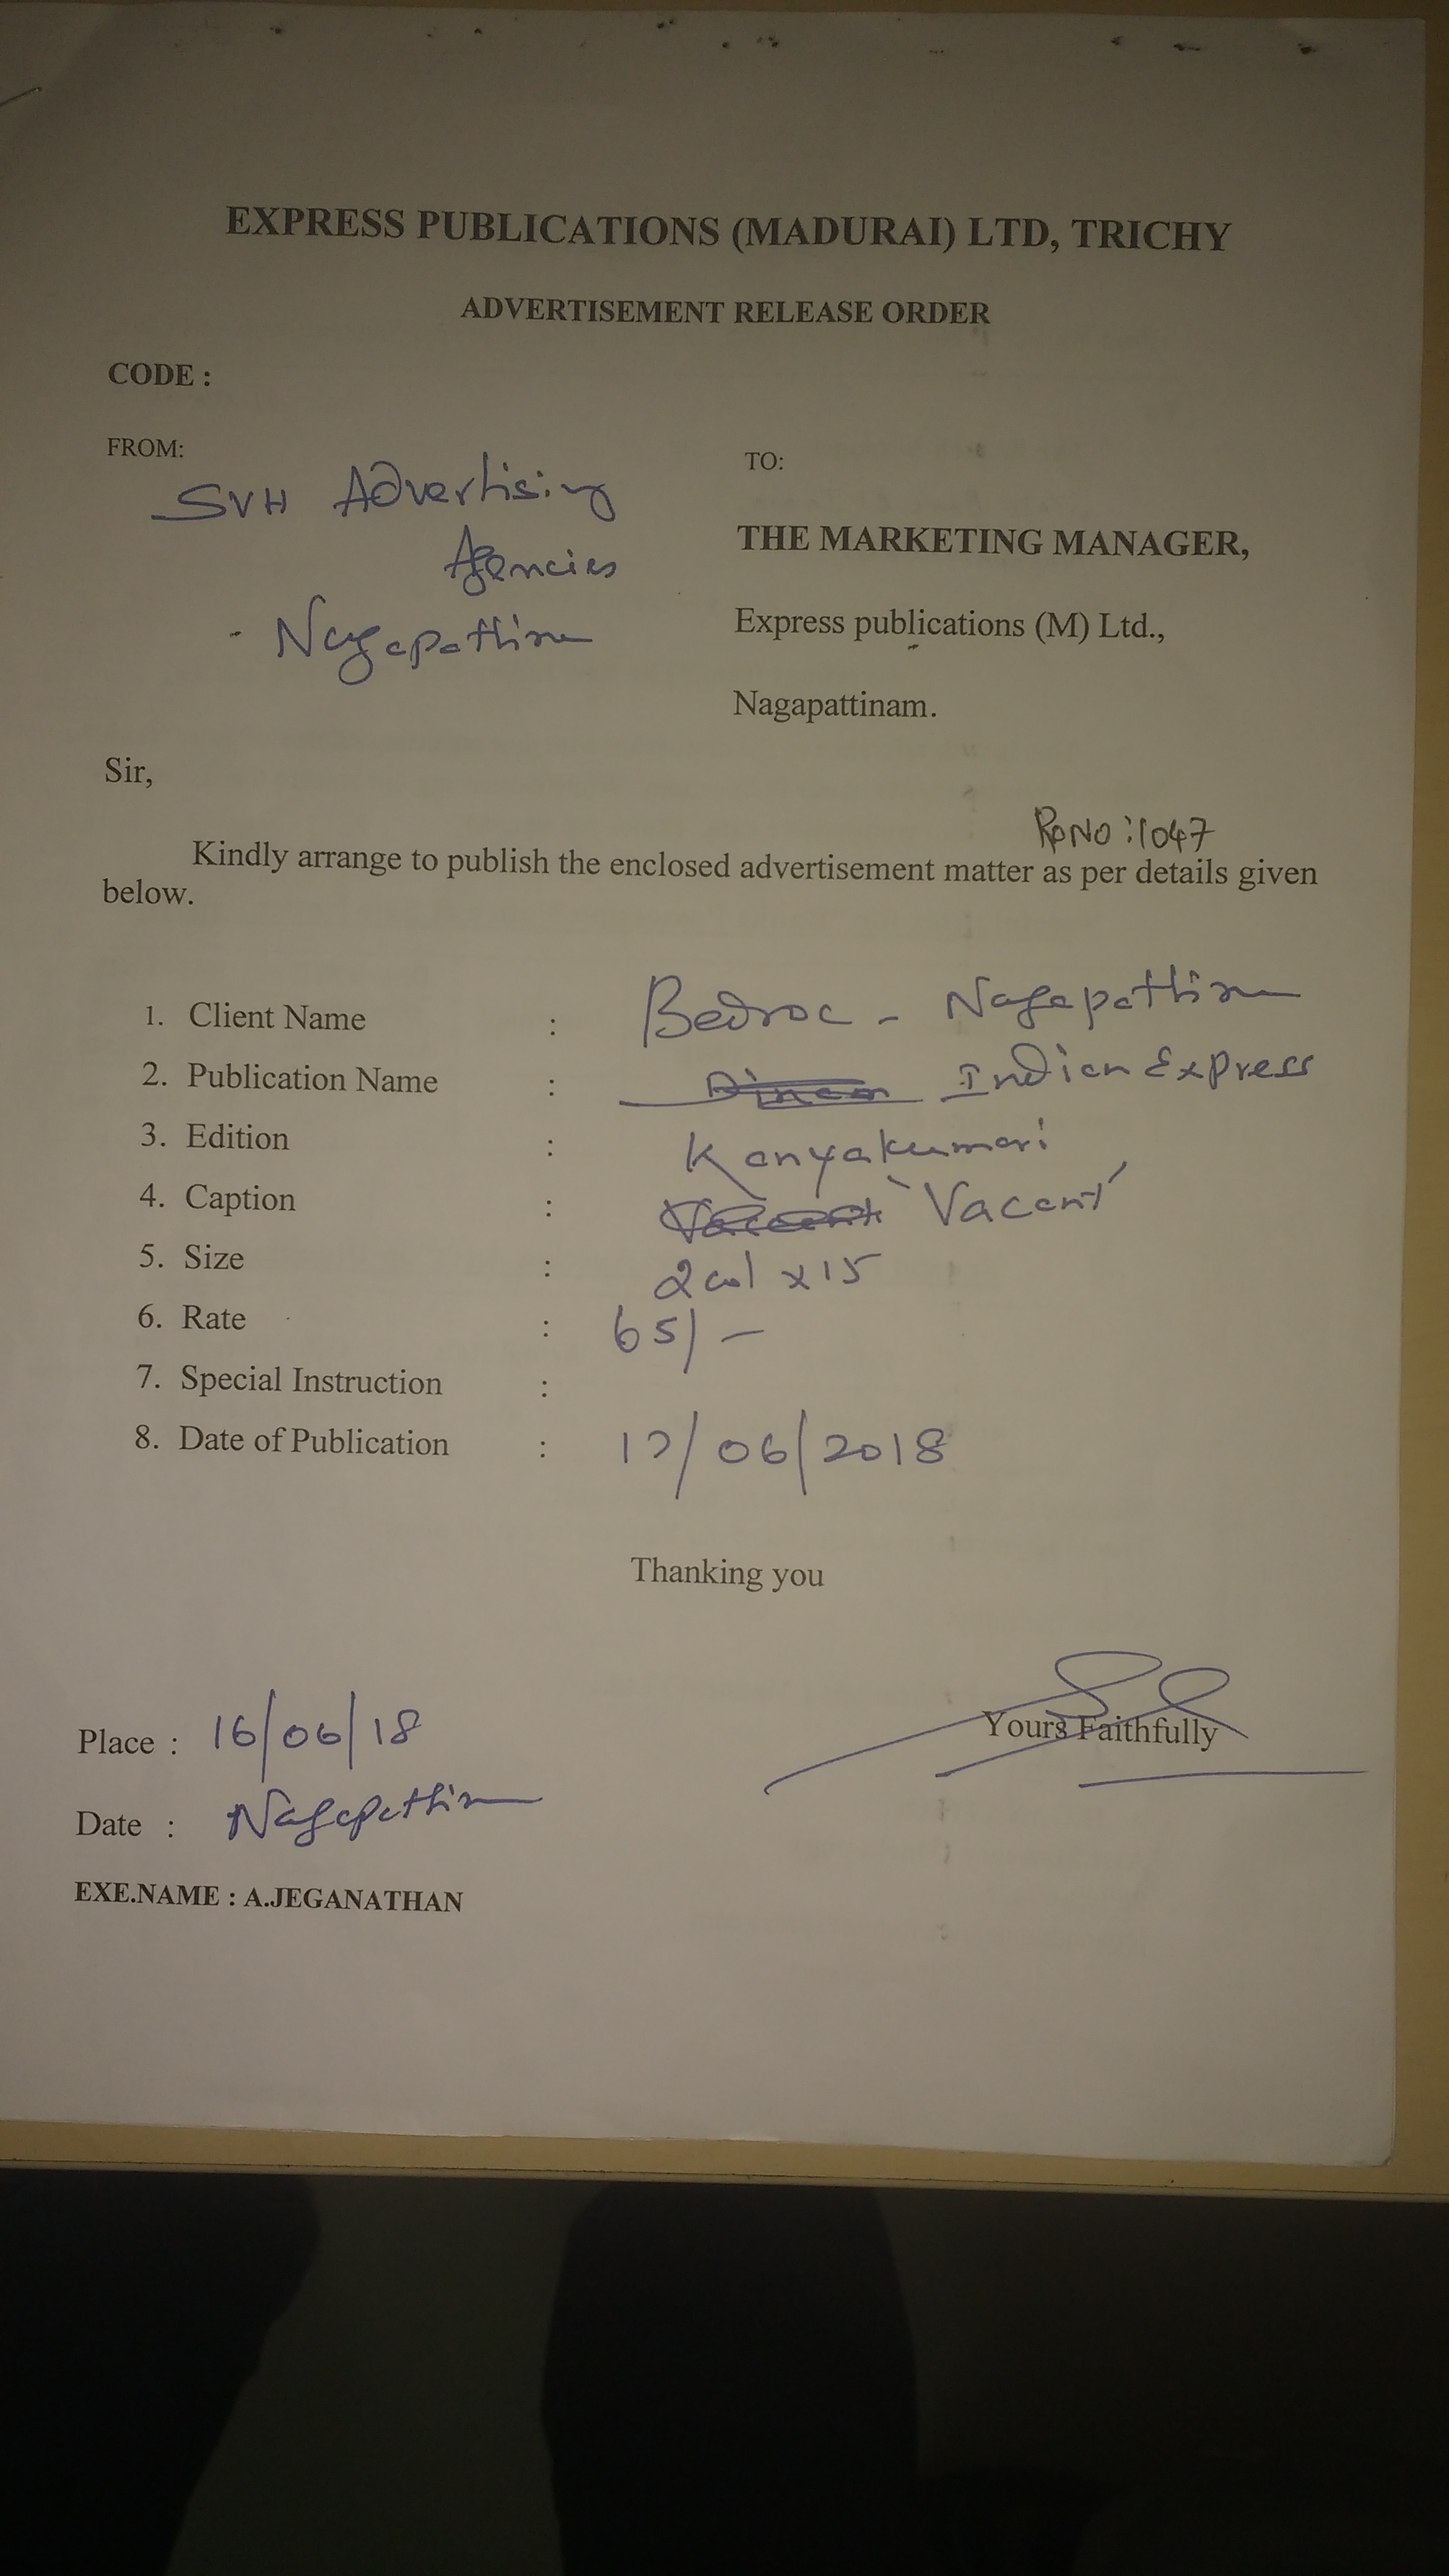 EXPRESS PUBLICATIONS (MADURAI) LTD, TRICHY
ADVERTISEMENT RELEASE ORDER
CODE :
FROM:
SVH Advertising
Agencies
Nagapattinam
TO:
THE MARKETING MANAGER,
Express publications (M) Ltd.,
Nagapattinam.
Sir,
RoNO:1047
Kindly arrange to publish the enclosed advertisement matter as per details given
below.
1. Client Name : Bedroc - Nagapattinam
2. Publication Name : Indian Express
3. Edition : Kanyakumari
4. Caption : 'Vacant'
5. Size : 2 col x 15
6. Rate : 65/-
7. Special Instruction :
8. Date of Publication : 17/06/2018
Thanking you
Yours Faithfully
Place : 16/06/18
Date : Nagapattinam
EXE.NAME : A.JEGANATHAN